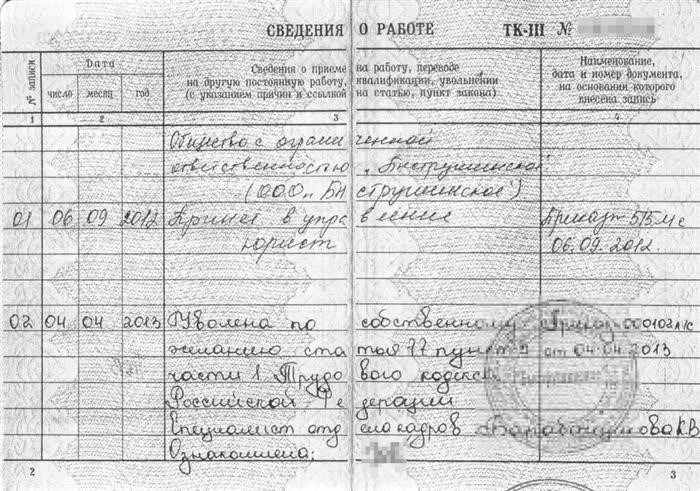 СВЕДЕНИЯ О РАБОТЕ ТК-III №
№ записи
Дата
число месяц год
Сведения о приеме на работу, переводе
на другую постоянную работу, квалификации, увольнении
(с указанием причин и ссылкой на статью, пункт закона)
Наименование,
дата и номер документа,
на основании которого
внесена запись
1 2 3 4
Общество с ограниченной
ответственностью
(ООО
01 06 09 2012 Принят в управление Приказ
юрист 06.09.2012.
02 04 04 2013 Уволена по собственному Приказ
желанию статья 77 пункт 3 от 04.04.2013
части 1 Трудового кодекса
Российской Федерации
Специалист отдела кадров
Ознакомлена:
2 3